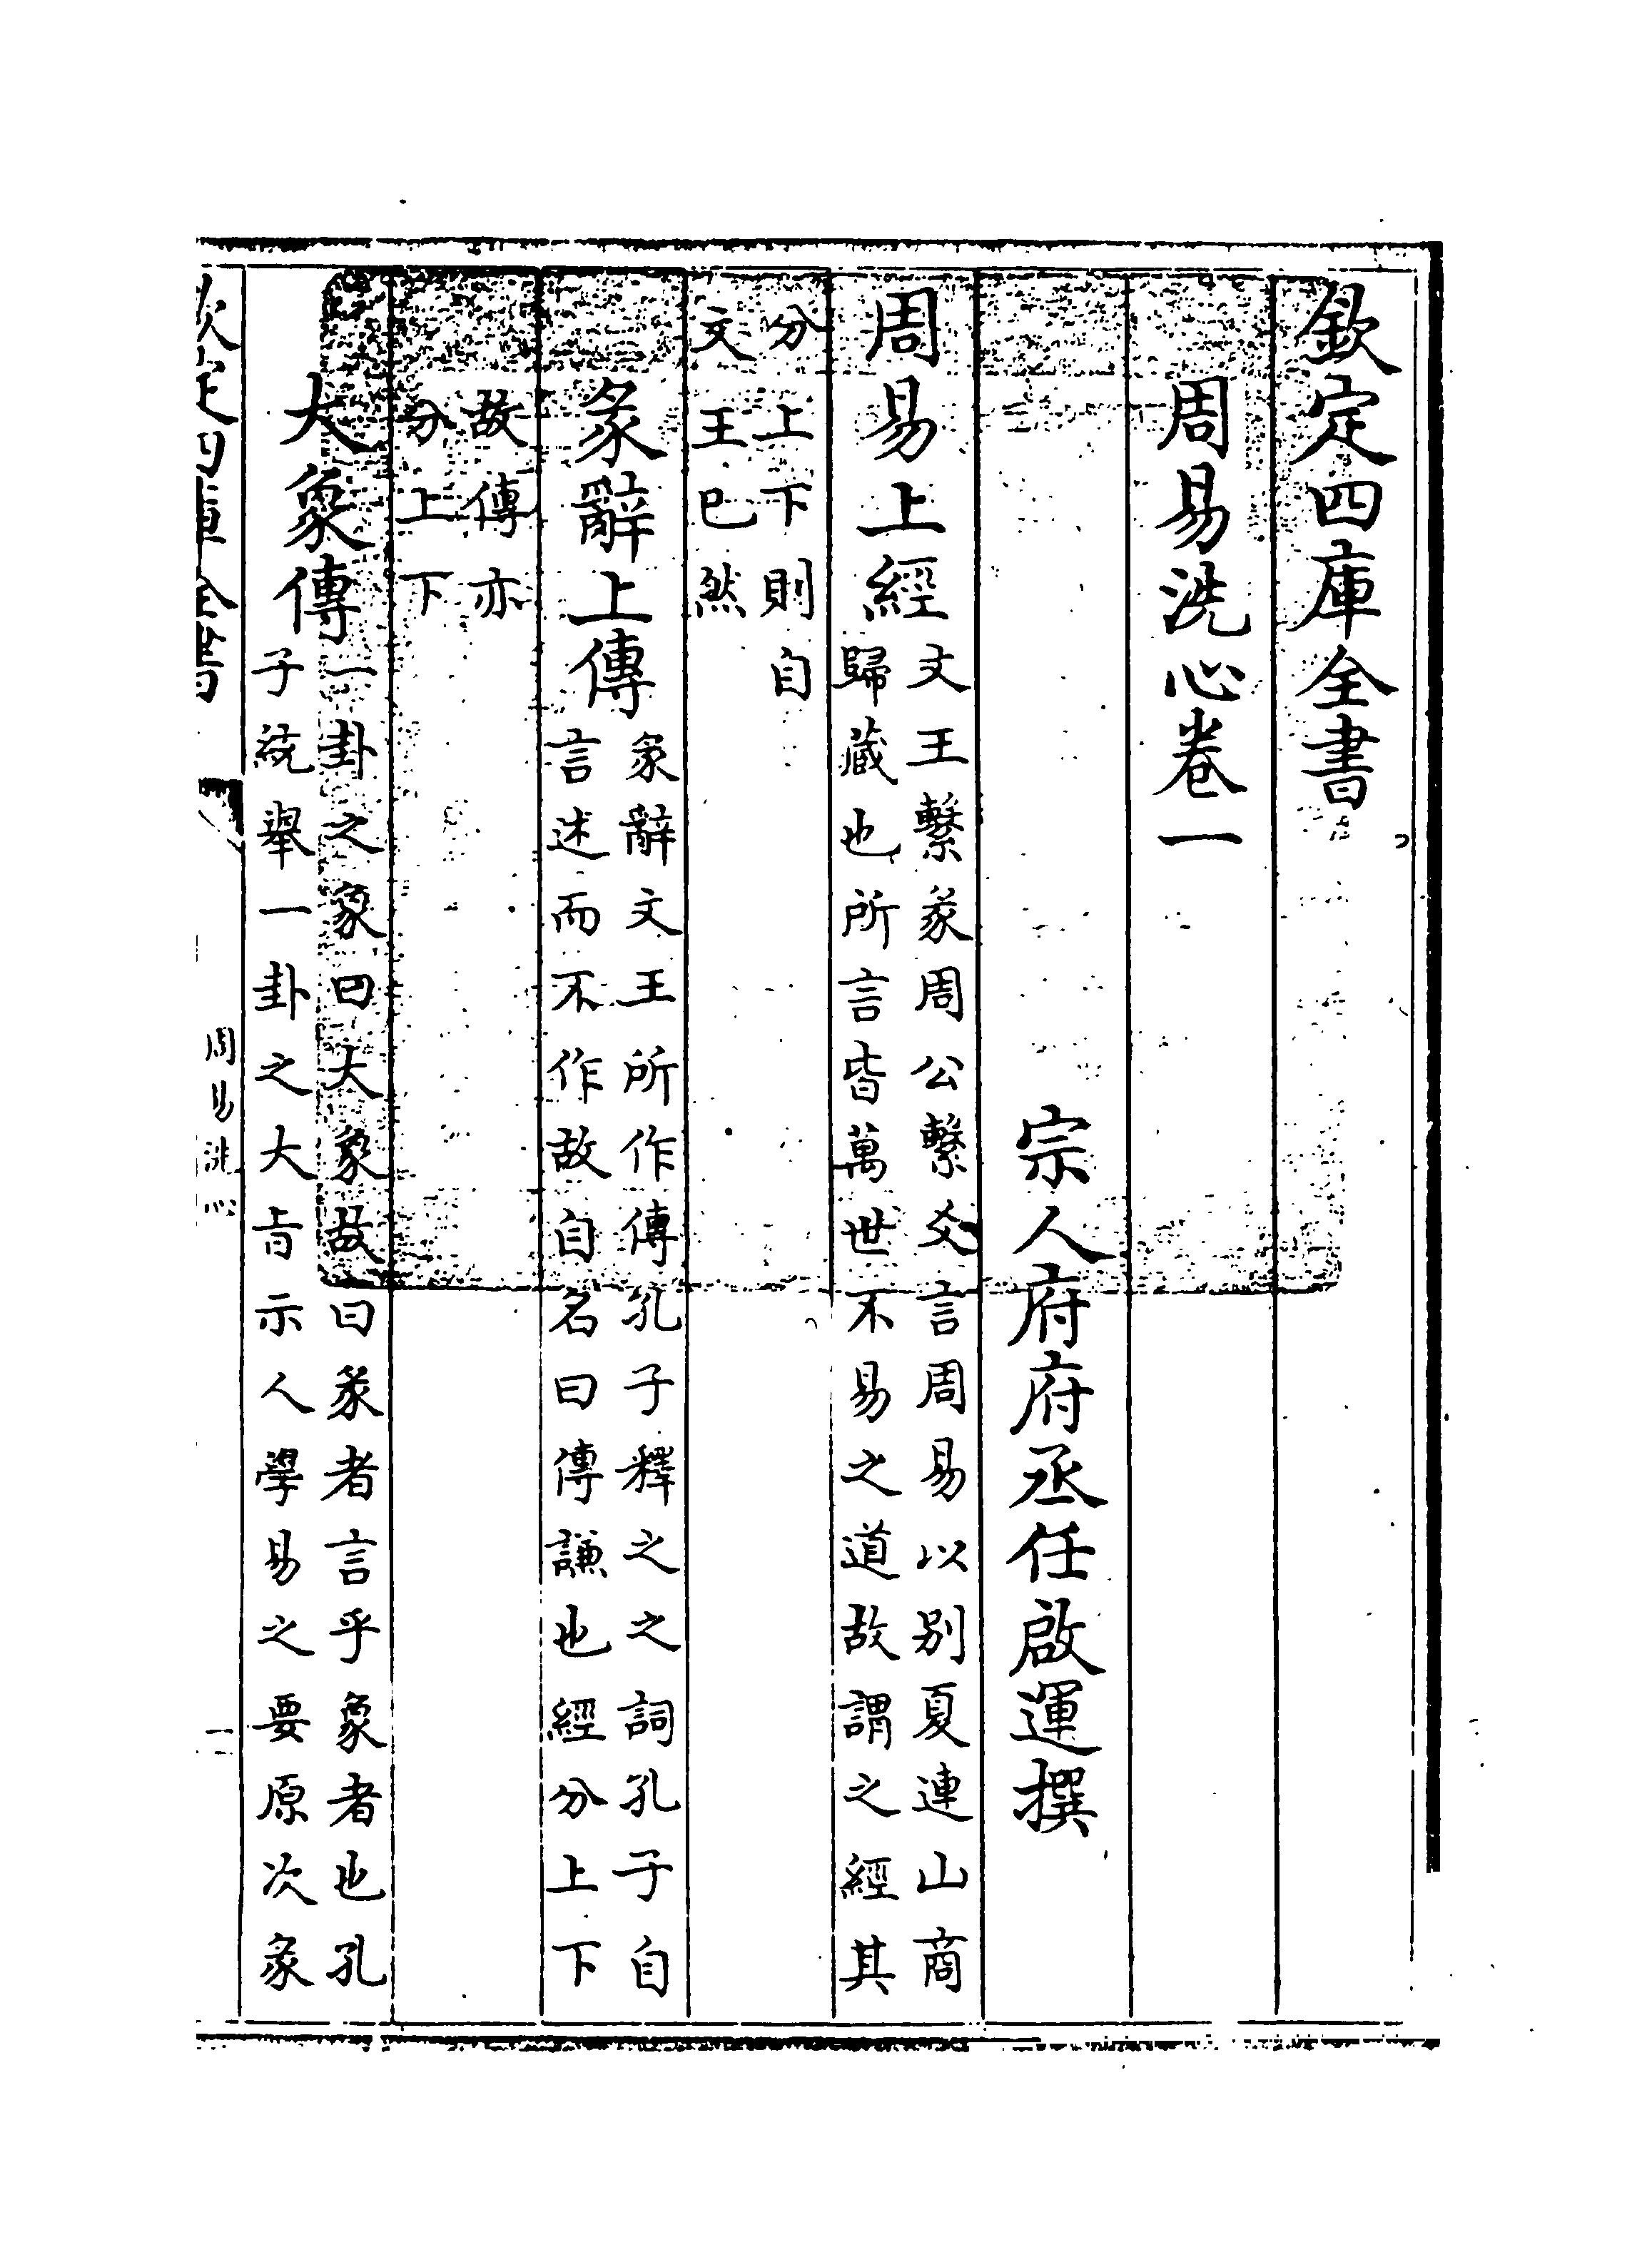 欽定四庫全書
周易洗心卷一
宗人府府丞任啟運撰
周易上經文王繫彖周公繫爻言周易以别夏連山商
歸藏也所言皆萬世不易之道故謂之經其
分上下則自
文王已然
彖辭上傳彖辭文王所作傳孔子釋之之詞孔子自
言述而不作故自名曰傳謙也經分上下
故傳亦
分上下
大象傳一卦之象曰大象故曰彖者言乎象者也孔
子統舉一卦之大㫖示人學易之要原次彖
欽定四庫全書
周易洗心
一